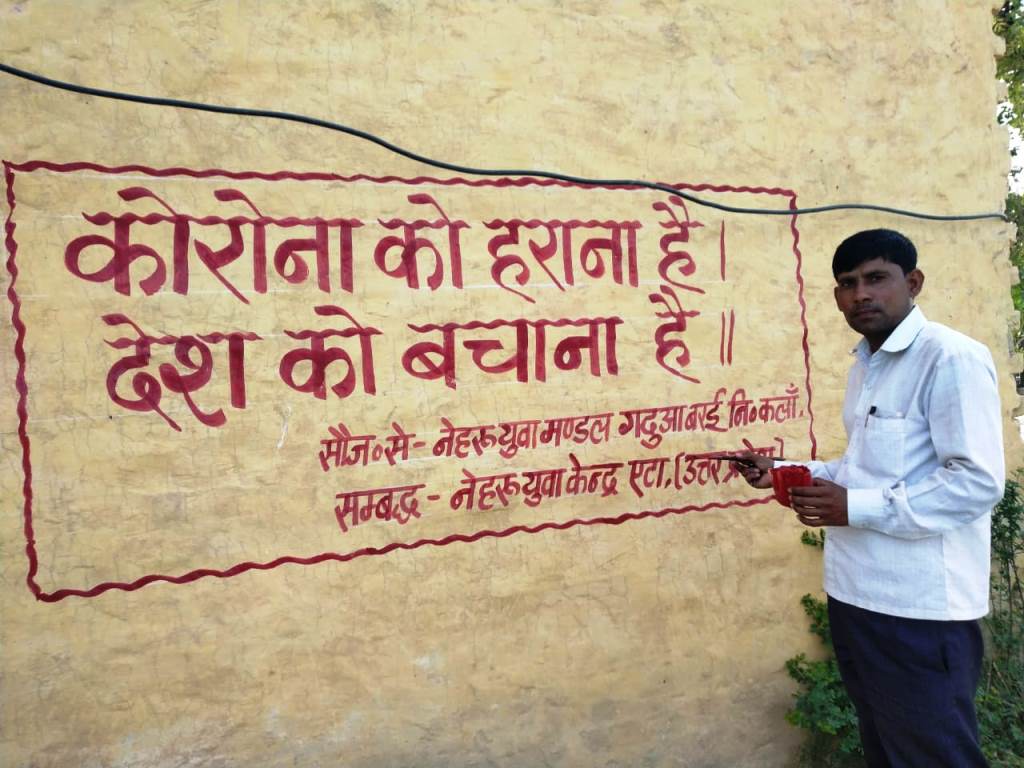 कोरोना को हराना है।
देश को बचाना है॥
सौज॰से- नेहरू युवा मण्डल गदुआ बरई नि॰कलाँ,
सम्बद्ध - नेहरू युवा केन्द्र एटा, (उत्तर